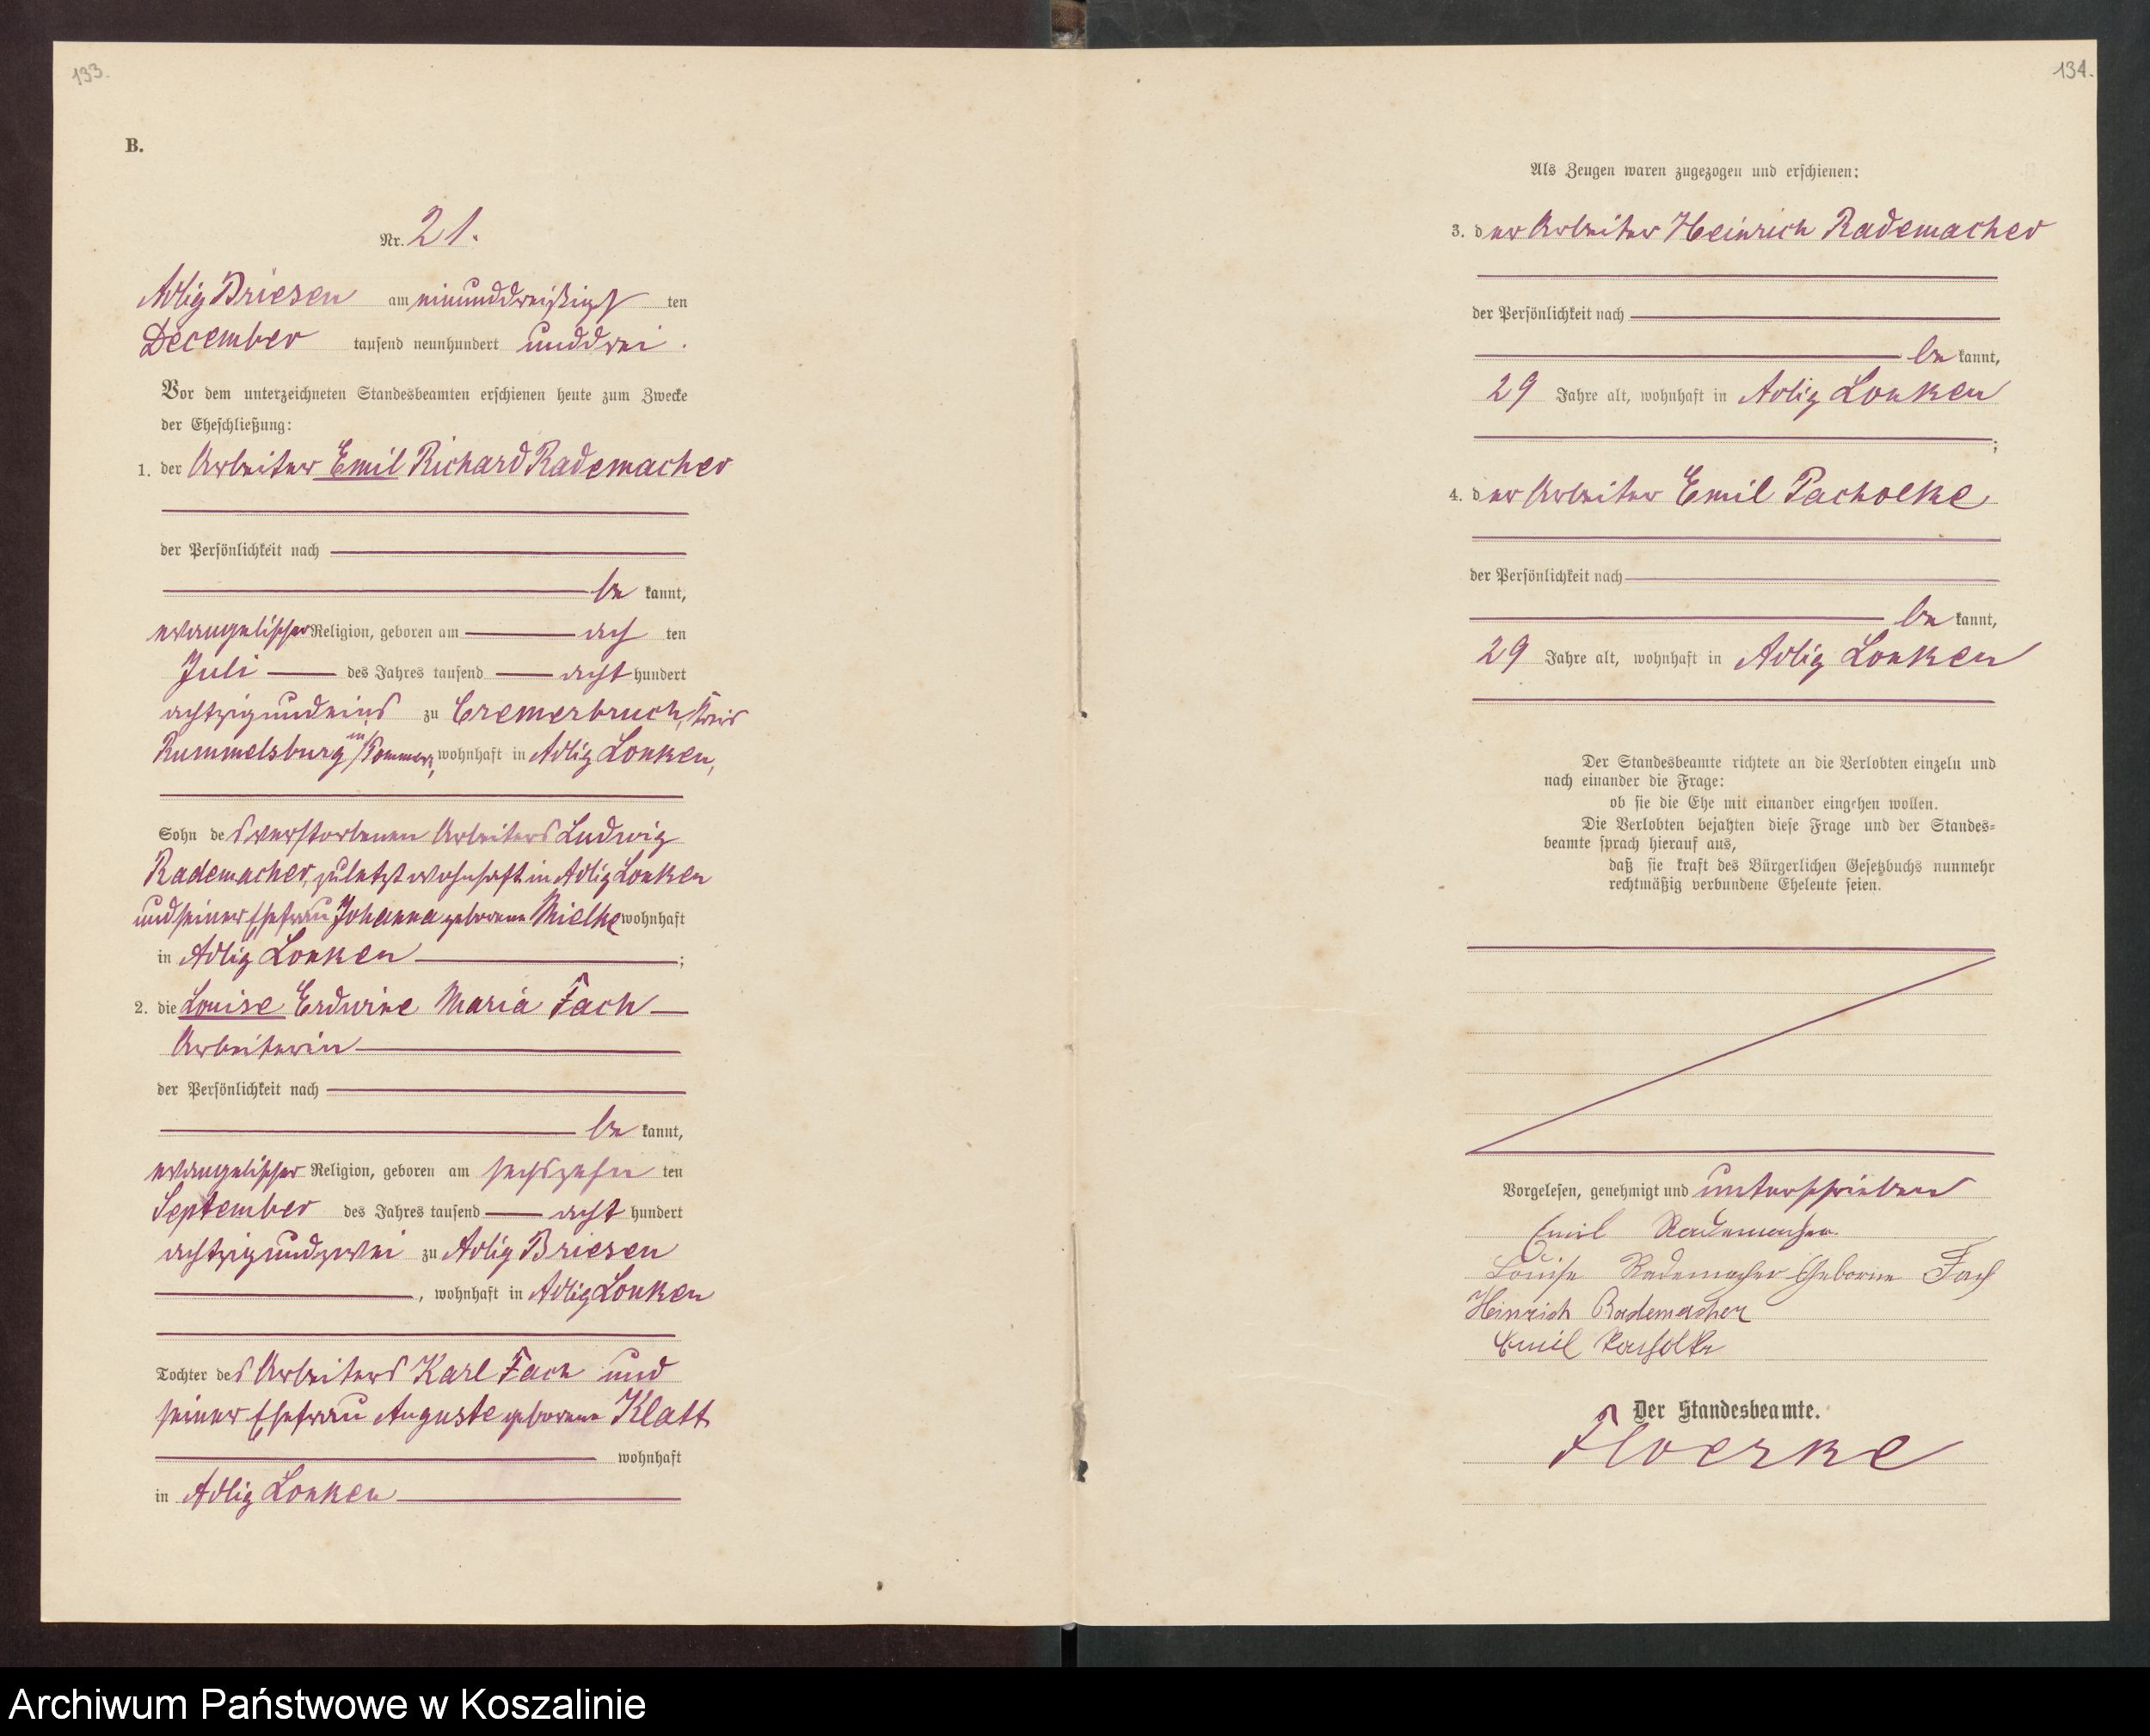 133.
B.
Nr. 21.
Adlig Briesen am einunddreißigst ten
December tausend neunhundert unddrei.
Vor dem unterzeichneten Standesbeamten erschienen heute zum Zwecke
der Eheschließung:
1. der Arbeiter Emil Richard Rademacher
der Persönlichkeit nach
be kannt,
evangelischer Religion, geboren am ach ten
Juli des Jahres tausend acht hundert
achtzigundeins zu Cremerbruch, Kreis
Rummelsburg in Pommern, wohnhaft in Adlig Lonken,
Sohn des verstorbenen Arbeiters Ludwig
Rademacher, zuletzt wohnhaft in Adlig Lonken
und seiner Ehefrau Johanna geborene Mielke wohnhaft
in Adlig Lonken;
2. die Louise Erdwine Maria Fach
Arbeiterin
der Persönlichkeit nach
be kannt,
evangelischer Religion, geboren am sechszehn ten
September des Jahres tausend acht hundert
achtzigundzwei zu Adlig Briesen
, wohnhaft in Adlig Lonken
Tochter des Arbeiters Karl Fach und
seiner Ehefrau Auguste geborene Klatt
wohnhaft
in Adlig Lonken
134.
Als Zeugen waren zugezogen und erschienen:
3. der Arbeiter Heinrich Rademacher
der Persönlichkeit nach
be kannt,
29 Jahre alt, wohnhaft in Adlig Lonken
;
4. der Arbeiter Emil Pacholke
der Persönlichkeit nach
be kannt,
29 Jahre alt, wohnhaft in Adlig Lonken
Der Standesbeamte richtete an die Verlobten einzeln und
nach einander die Frage:
ob sie die Ehe mit einander eingehen wollen.
Die Verlobten bejahten diese Frage und der Standes-
beamte sprach hierauf aus,
daß sie kraft des Bürgerlichen Gesetzbuchs nunmehr
rechtmäßig verbundene Eheleute seien.
Vorgelesen, genehmigt und unterschrieben
Emil Rademacher
Louise Rademacher Geborne Fach
Heinrich Rademacher
Emil Pacholke
Der Standesbeamte.
Floerke
Archiwum Państwowe w Koszalinie